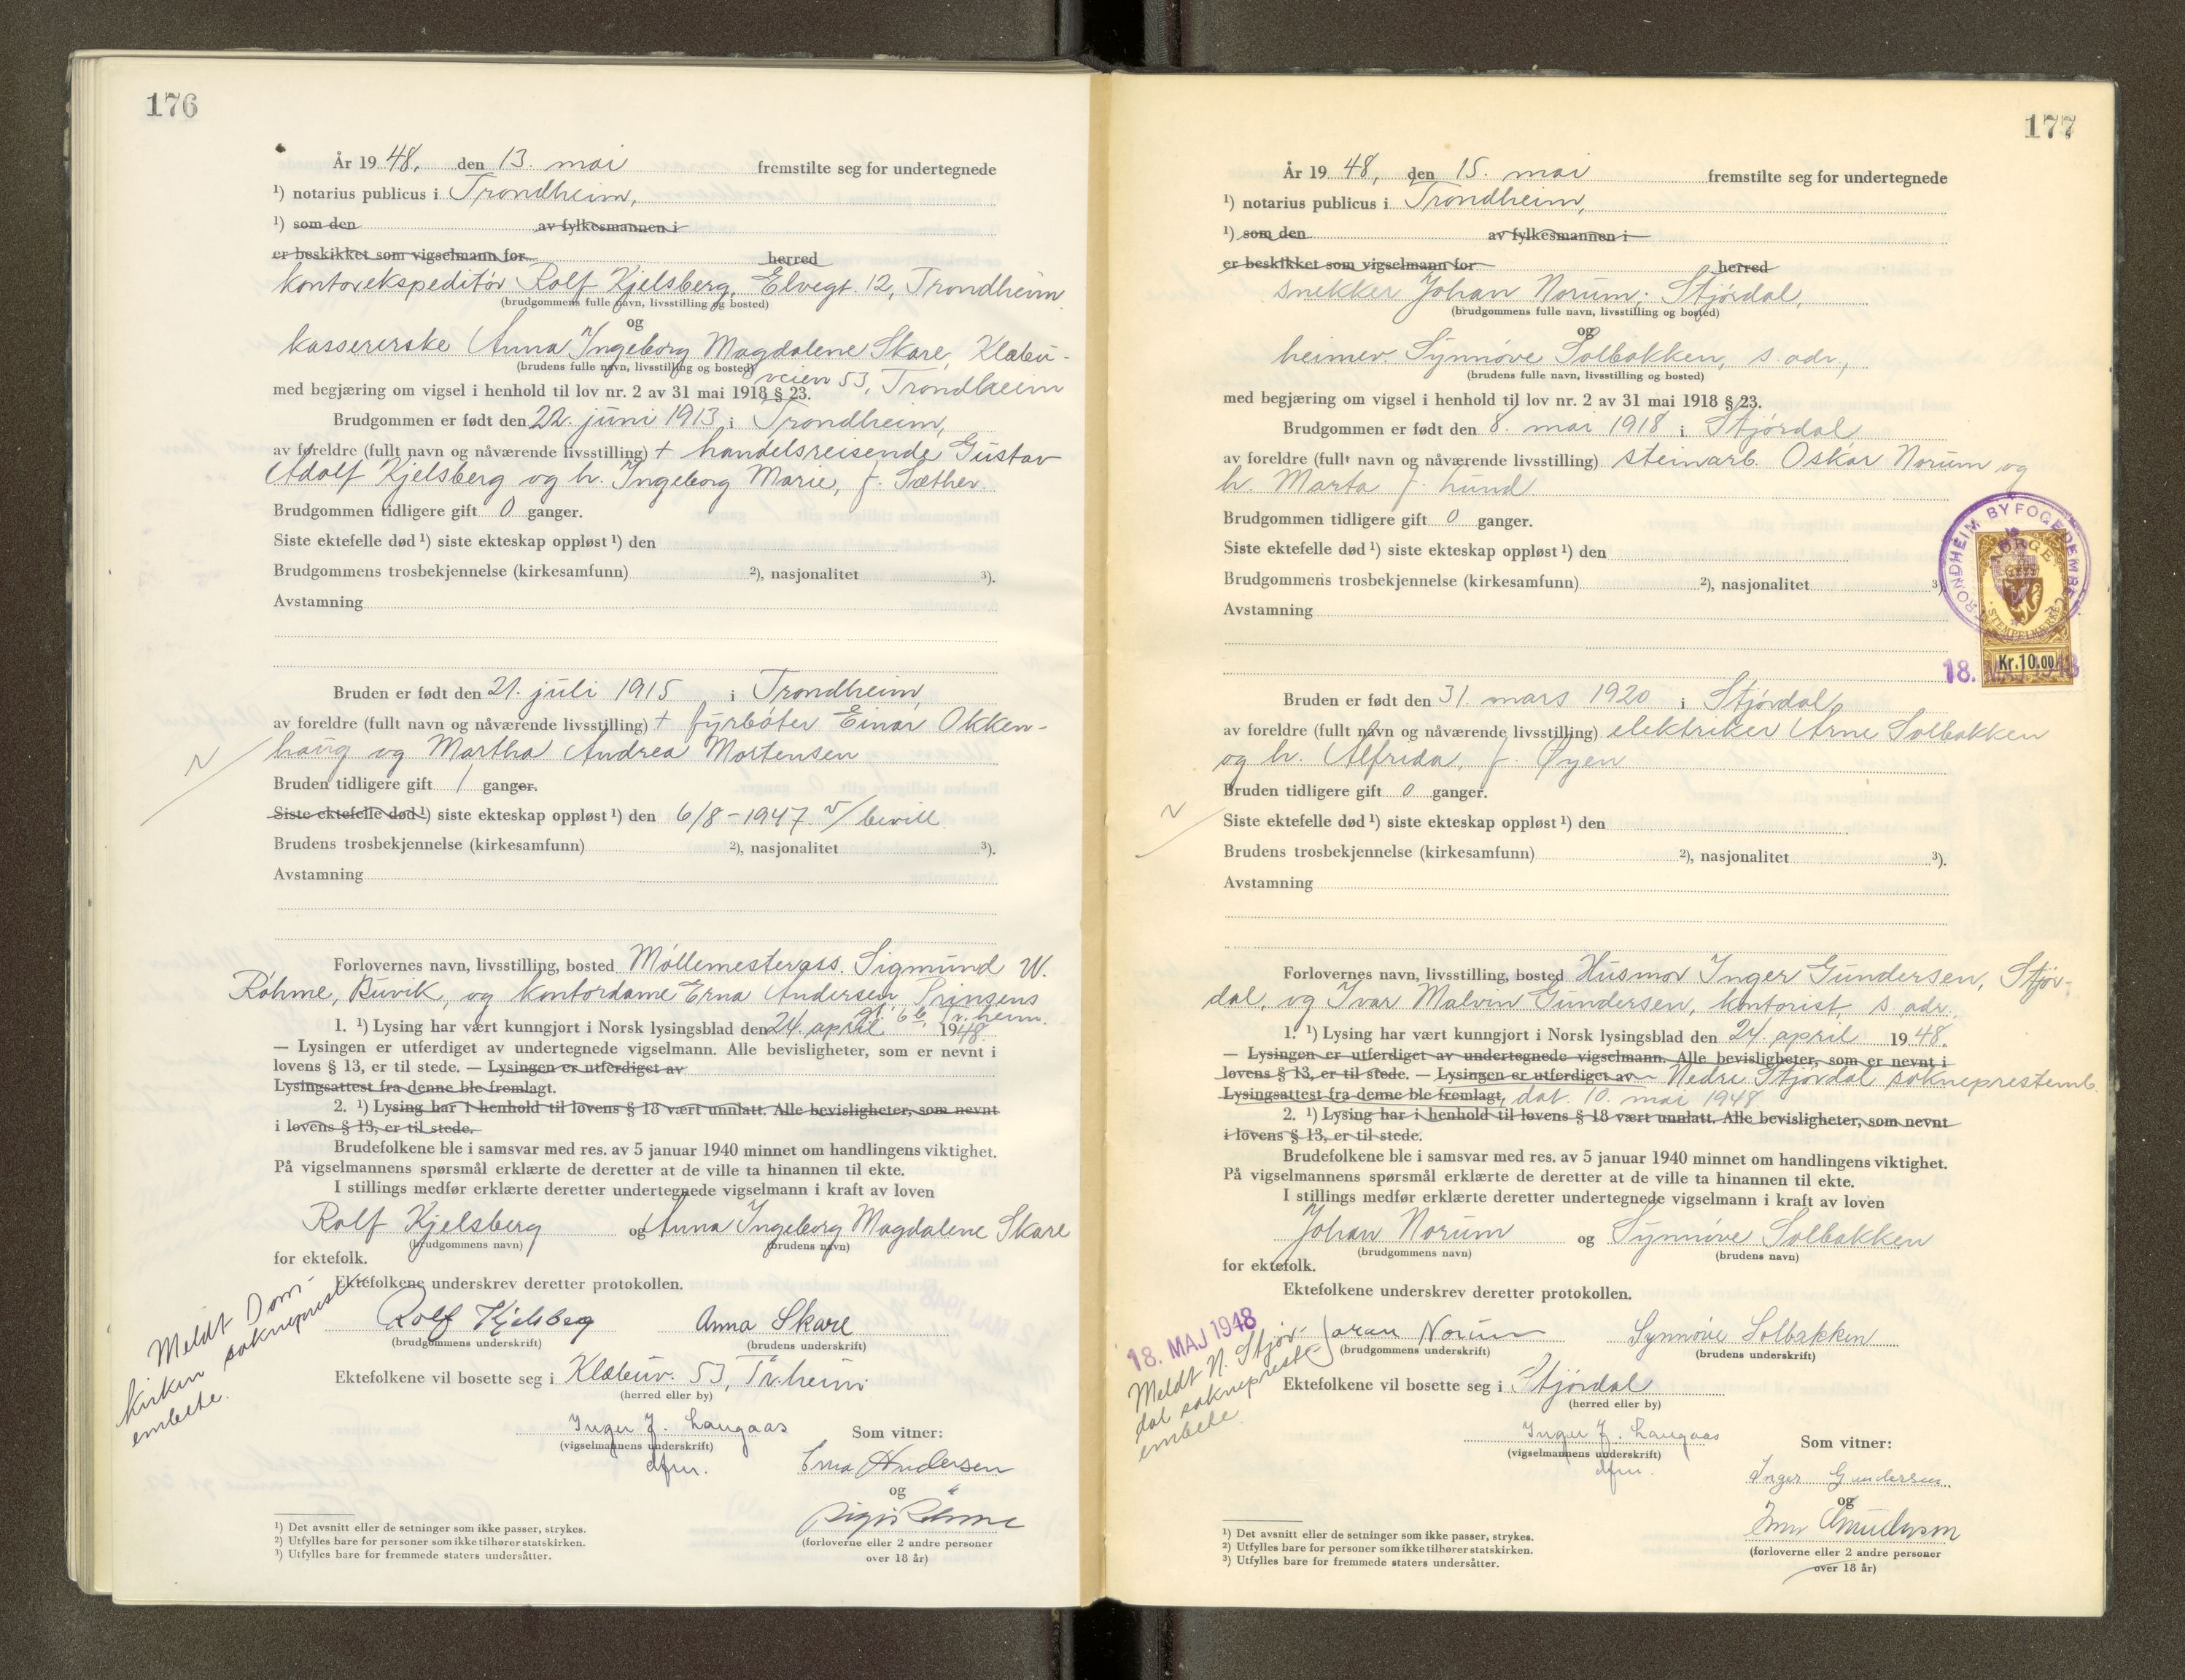 176
År 1948, den 13. mai fremstilte seg for undertegnede
¹) notarius publicus i Trondheim,
¹) som den av fylkesmannen i
er beskikket som vigselmann for herred
kontorekspeditör Rolf Kjelsberg, Elvegt. 12, Trondheim
(brudgommens fulle navn, livsstilling og bosted)
og
kassererske Anna Ingeborg Magdalene Skare, Klæbu-
(brudens fulle navn, livsstilling og bosted)
veien 53, Trondheim
med begjæring om vigsel i henhold til lov nr. 2 av 31 mai 1918 § 23.
Brudgommen er født den 22. juni 1913 i Trondheim,
av foreldre (fullt navn og nåværende livsstilling) + handelsreisende Gustav
Adolf Kjelsberg og h. Ingeborg Marie, f. Sæther.
Brudgommen tidligere gift 0 ganger.
Siste ektefelle død ¹) siste ekteskap oppløst ¹) den
Brudgommens trosbekjennelse (kirkesamfunn) ²), nasjonalitet ³).
Avstamning
Bruden er født den 21. juli 1915 i Trondheim
av foreldre (fullt navn og nåværende livsstilling) + fyrböter Einar Okken-
haug og Martha Andrea Mortensen
Bruden tidligere gift 1 ganger.
Siste ektefelle død ¹) siste ekteskap oppløst ¹) den 6/8-1947 v/bevill.
Brudens trosbekjennelse (kirkesamfunn) ²), nasjonalitet ³).
Avstamning
Forlovernes navn, livsstilling, bosted Möllemesterass. Sigmund W.
Röhme, Buvik, og kontordame Erna Andersen Prinsens
gt. 6b, Tr.heim.
1. ¹) Lysing har vært kunngjort i Norsk lysingsblad den 24. april 1948.
— Lysingen er utferdiget av undertegnede vigselmann. Alle bevisligheter, som er nevnt i
lovens § 13, er til stede. — Lysingen er utferdiget av
Lysingsattest fra denne ble fremlagt.
2. ¹) Lysing har i henhold til lovens § 18 vært unnlatt. Alle bevisligheter, som nevnt
i lovens § 13, er til stede.
Brudefolkene ble i samsvar med res. av 5 januar 1940 minnet om handlingens viktighet.
På vigselmannens spørsmål erklærte de deretter at de ville ta hinannen til ekte.
I stillings medfør erklærte deretter undertegnede vigselmann i kraft av loven
Rolf Kjelsberg og Anna Ingeborg Magdalene Skare
(brudgommens navn) (brudens navn)
for ektefolk.
Ektefolkene underskrev deretter protokollen.
Meldt Dom-
kirken sokneprest
embete.
Rolf Kjelsberg Anna Skare
(brudgommens underskrift) (brudens underskrift)
Ektefolkene vil bosette seg i Klæbuv. 53, Tr.heim
(herred eller by)
Inger J. Laugaas
(vigselmannens underskrift)
dfm.
Som vitner:
Erna Andersen
og
(forloverne eller 2 andre personer
over 18 år)
¹) Det avsnitt eller de setninger som ikke passer, strykes.
²) Utfylles bare for personer som ikke tilhører statskirken.
³) Utfylles bare for fremmede staters undersåtter.
177
År 1948, den 15. mai fremstilte seg for undertegnede
¹) notarius publicus i Trondheim,
¹) som den av fylkesmannen i
er beskikket som vigselmann for herred
snekker Johan Norum, Stjördal,
(brudgommens fulle navn, livsstilling og bosted)
og
heimev. Synnöve Solbakken, s. adr.,
(brudens fulle navn, livsstilling og bosted)
med begjæring om vigsel i henhold til lov nr. 2 av 31 mai 1918 § 23.
Brudgommen er født den 8. mai 1918 i Stjördal
av foreldre (fullt navn og nåværende livsstilling) steinarb. Oskar Norum og
h. Marta f. Lund
Brudgommen tidligere gift 0 ganger.
Siste ektefelle død ¹) siste ekteskap oppløst ¹) den
Brudgommens trosbekjennelse (kirkesamfunn) ²), nasjonalitet ³)
Avstamning
TRONDHEIM BYFOGDEMBETE
NORGE
STEMPELMERKE
Kr. 10.00
18. MAJ 1948
Bruden er født den 31. mars 1920 i Stjördal
av foreldre (fullt navn og nåværende livsstilling) elektriker Arne Solbakken
og h. Alfrida, f. Øyen
Bruden tidligere gift 0 ganger.
Siste ektefelle død ¹) siste ekteskap oppløst ¹) den
Brudens trosbekjennelse (kirkesamfunn) ²), nasjonalitet ³).
Avstamning
Forlovernes navn, livsstilling, bosted Husmor Inger Gundersen, Stjör-
dal, og Ivar Malvin Gundersen, kontorist, s adr.
1. ¹) Lysing har vært kunngjort i Norsk lysingsblad den 24. april 1948.
— Lysingen er utferdiget av undertegnede vigselmann. Alle bevisligheter, som er nevnt i
lovens § 13, er til stede. — Lysingen er utferdiget av Nedre Stjördal soknprestemb.
Lysingsattest fra denne ble fremlagt, dat. 10. mai 1948
2. ¹) Lysing har i henhold til lovens § 18 vært unnlatt. Alle bevisligheter, som nevnt
i lovens § 13, er til stede.
Brudefolkene ble i samsvar med res. av 5 januar 1940 minnet om handlingens viktighet.
På vigselmannens spørsmål erklærte de deretter at de ville ta hinannen til ekte.
I stillings medfør erklærte deretter undertegnede vigselmann i kraft av loven
Johan Norum og Synnöve Solbakken
(brudgommens navn) (brudens navn)
for ektefolk.
Ektefolkene underskrev deretter protokollen.
18. MAJ 1948
Meldt N. Stjör-
dal sokneprest
embete.
Johan Norum Synnöve Solbakken
(brudgommens underskrift) (brudens underskrift)
Ektefolkene vil bosette seg i Stjördal
(herred eller by)
Inger J. Laugaas
(vigselmannens underskrift)
dfm.
Som vitner:
Inger Gundersen
og
(forloverne eller 2 andre personer
over 18 år)
¹) Det avsnitt eller de setninger som ikke passer, strykes.
²) Utfylles bare for personer som ikke tilhører statskirken.
³) Utfylles bare for fremmede staters undersåtter.